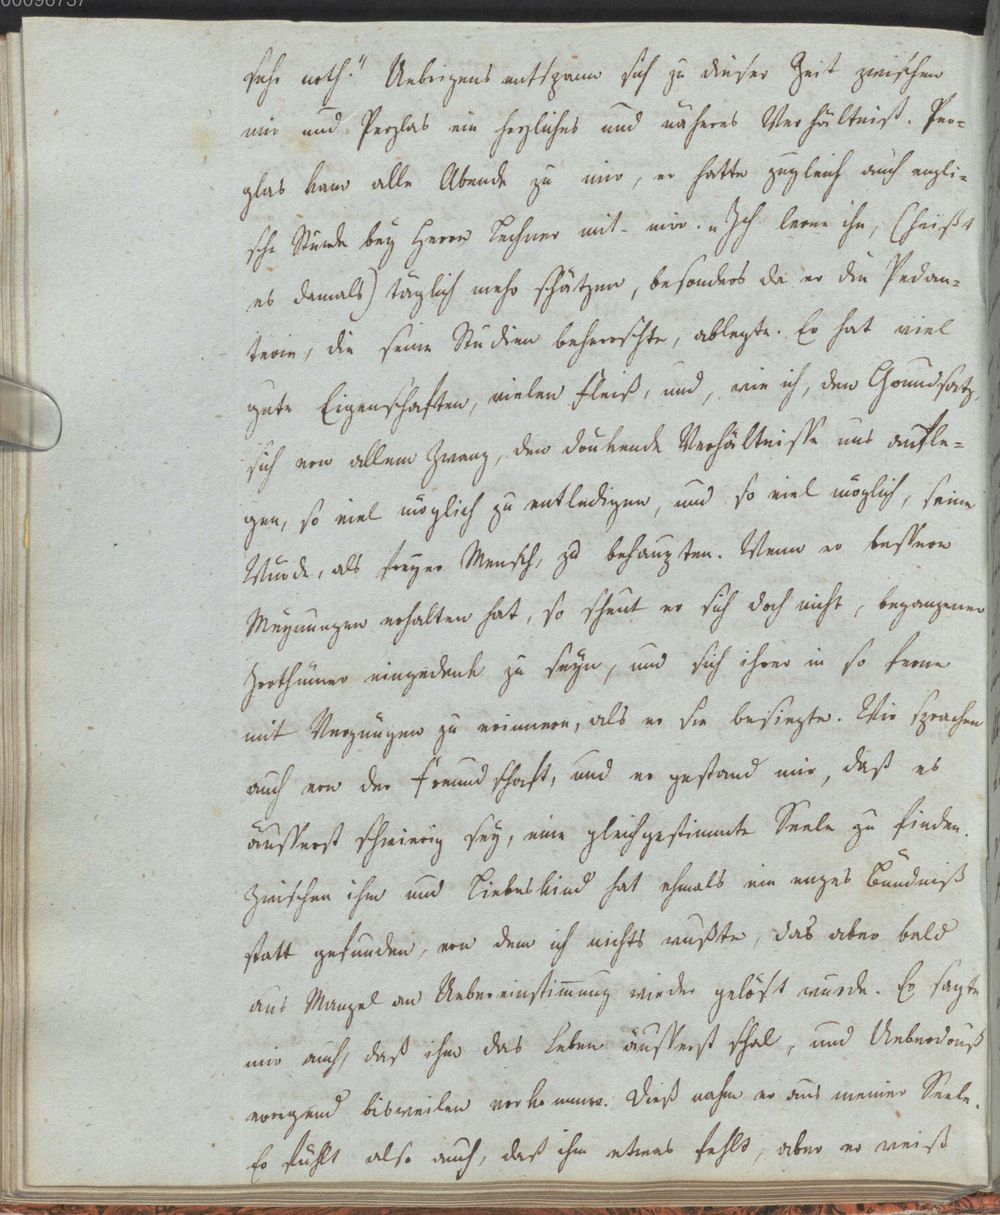 00096737
sehr noth." Uebrigens entspann sich zu dieser Zeit zwischen
mir und Perglas ein herzliches und näheres Verhältniß. Per=
glas kam alle Abende zu mir, er hatte zugleich auch engli=
sche Stunde bey Herrn Lechner mit mir. „Ich lerne ihn, (heißt
es damals) täglich mehr schätzen, besonders da er die Pedan=
terie, die seine Studien beherrschte, ablegte. Er hat viel
gute Eigenschaften, vielen Fleiß, und, wie ich, den Grundsatz,
sich von allem Zwang, den drukende Verhältnisse uns aufle=
gen, so viel möglich zu entledigen, und so viel möglich, seine
Würde, als freyer Mensch, zu behaupten. Wenn er bessere
Meynungen erhalten hat, so scheut er sich doch nicht, begangener
Irrthümer eingedenk zu seyn, und sich ihrer in so ferne
mit Vergnügen zu erinnern, als er sie besiegte. Wir sprachen
auch von der Freundschaft, und er gestand mir, daß es
äusserst schwierig sey, eine gleichgestimmte Seele zu finden.
Zwischen ihm und Liebeskind hat ehmals ein enges Bündniß
statt gefunden, von dem ich nichts wußte, das aber bald
aus Mangel an Uebereinstimmung wieder gelöst wurde. Er sagte
mir auch, daß ihm das Leben äusserst schal, und Ueberdruß
erregend bisweilen vorkomme. Dieß nahm er aus meiner Seele.
Er fühlt also auch, daß ihm etwas fehlt, aber er weiß